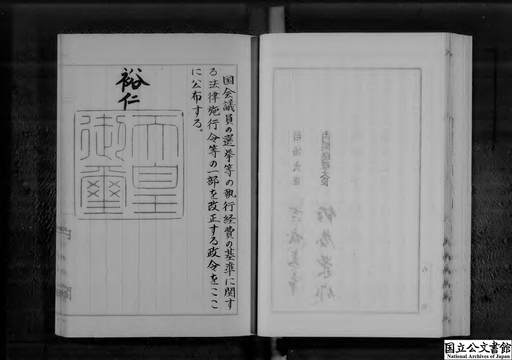 国会議員の選挙等の執行経費の基準に関す
る法律施行令等の一部を改正する政令をここ
に公布する。
裕仁
天皇
御璽
国立公文書館
National Archives of Japan